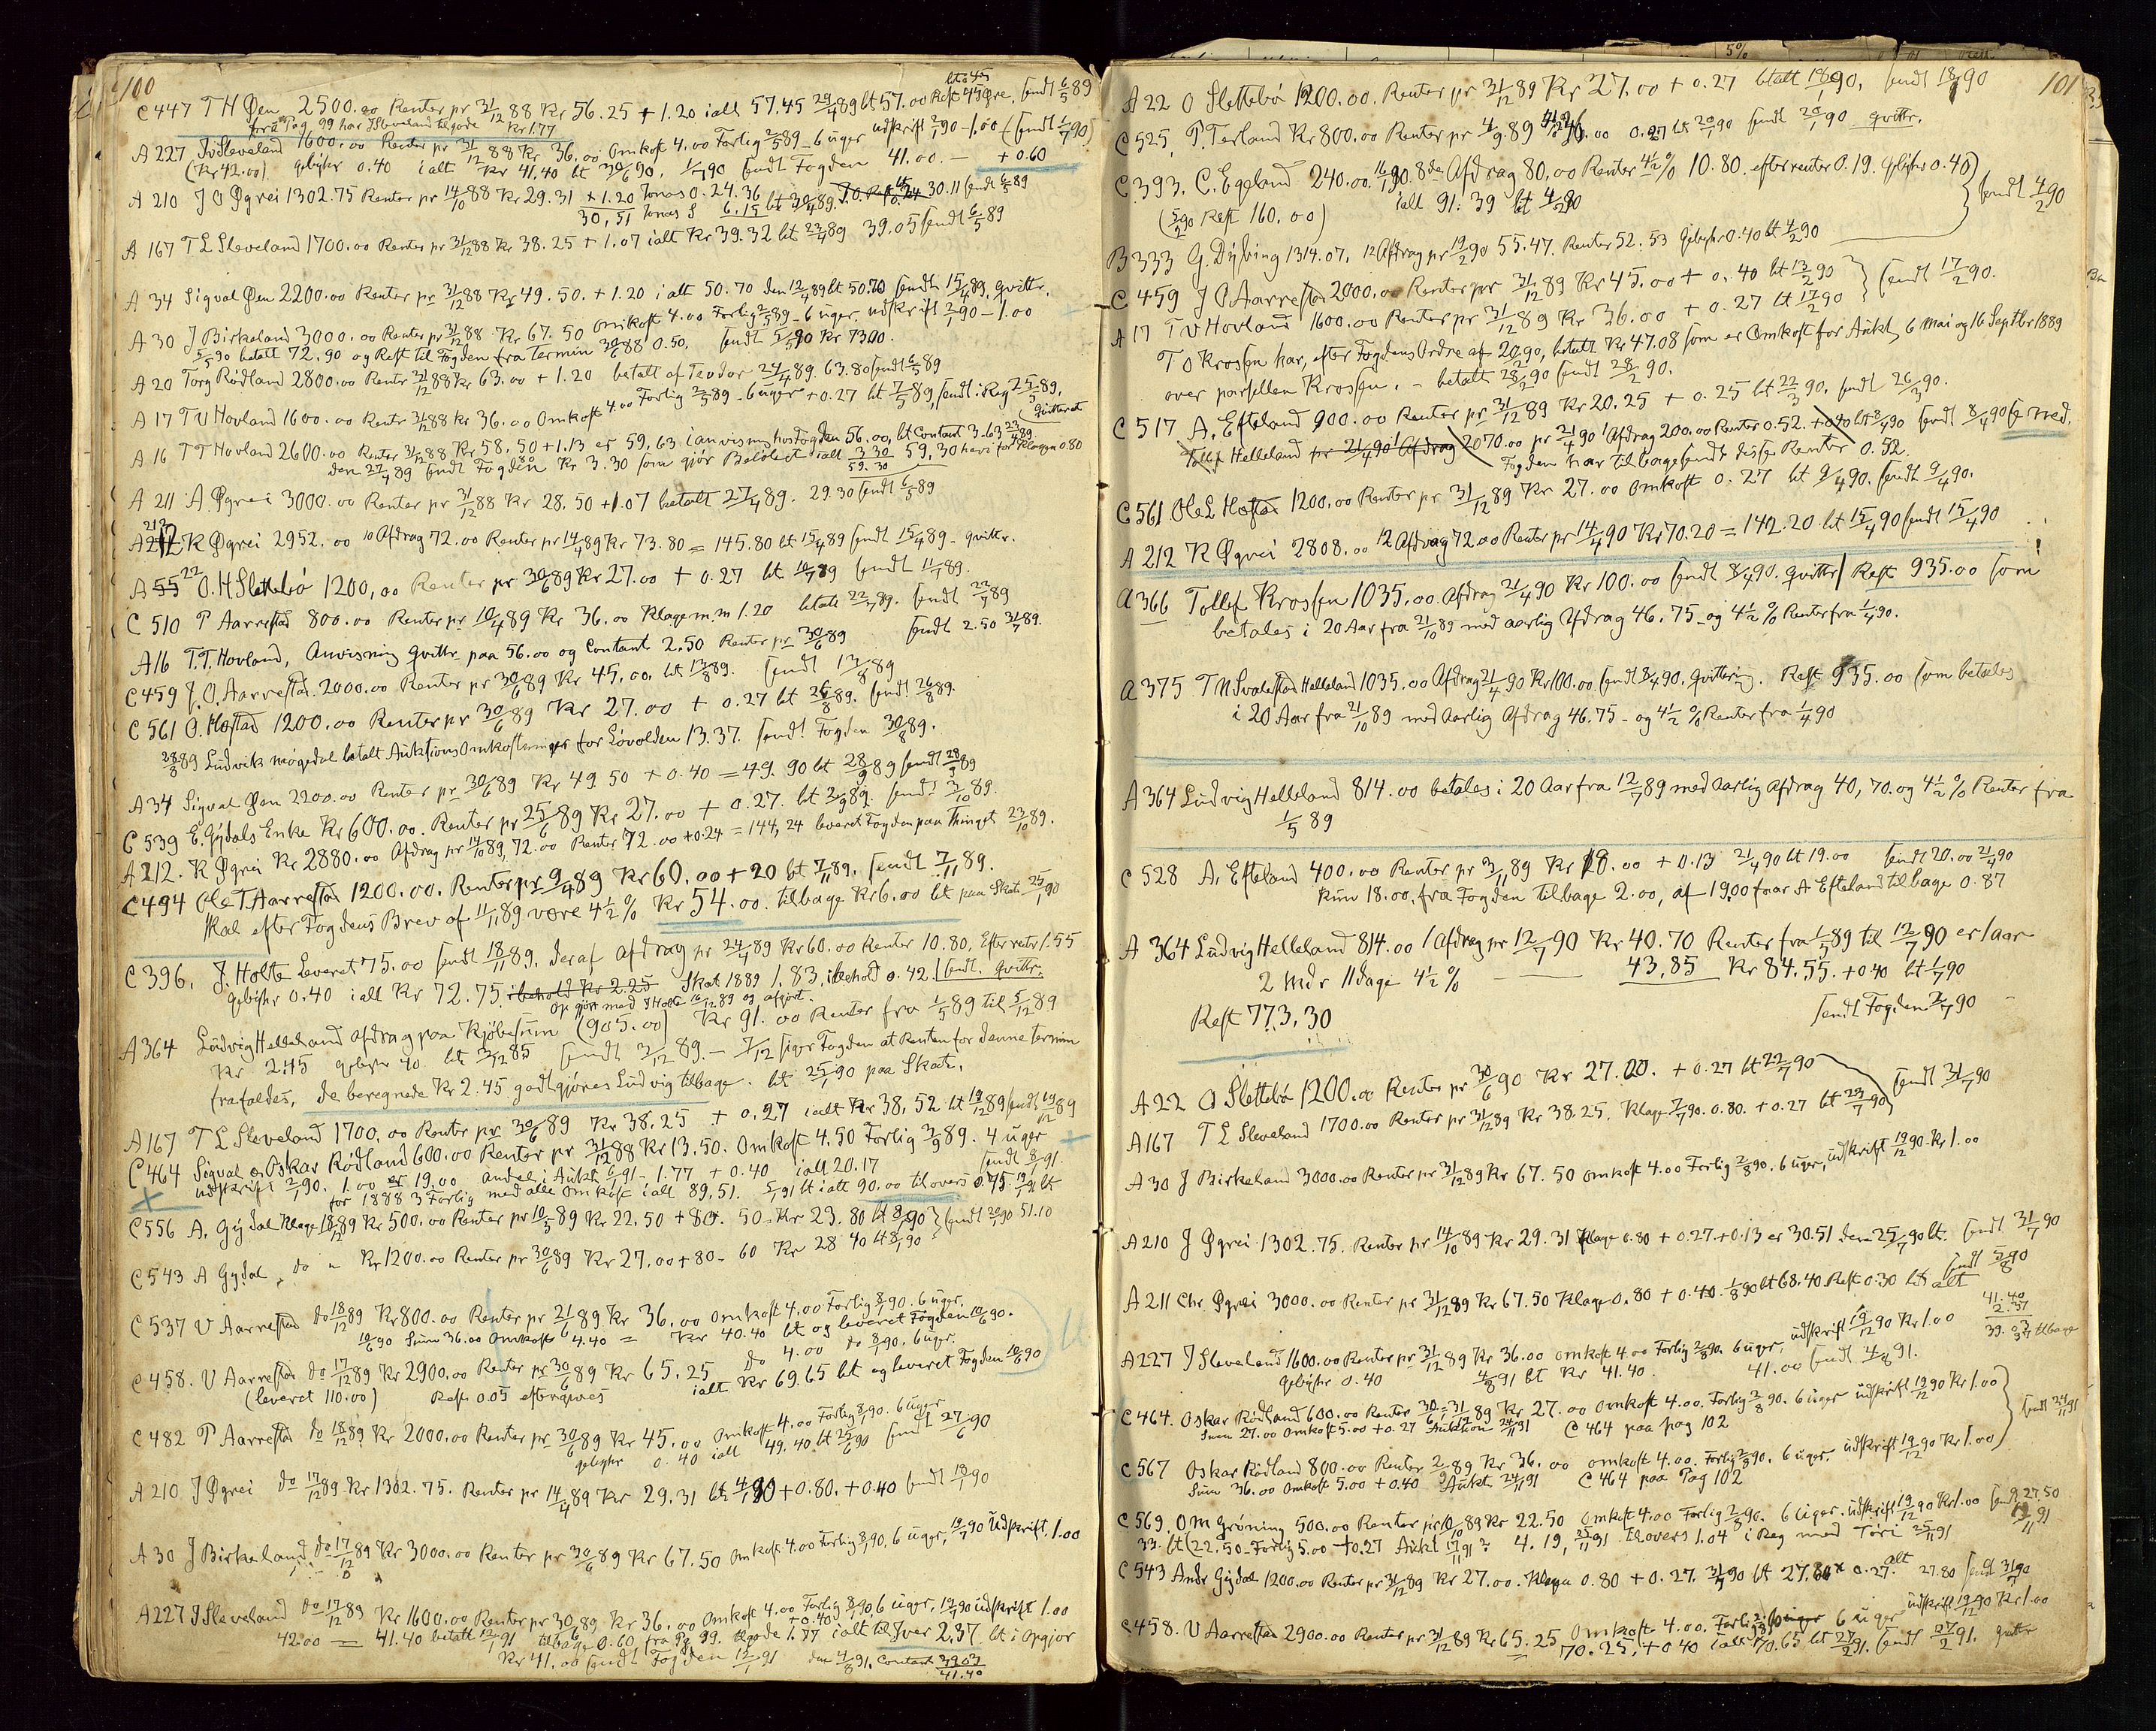 100
C 447 T H Øen 2500.00 Renter pr 31/12 88 Kr 56.25 + 1.20 ialt 57.45 29/4 89 bt 57.00 Rest 45 Øre, sendt 6/5 89
fra Pag 99 har I Sleveland tilgode Kr 1.77
A 227 I Sleveland 1600.00 Renter pr 31/12 88 Kr 36.00 Omkost 4.00 Forlig 2/5 89 - 6 uger udskrift 2/1 90 - 1.00 (sendt 1/7 90)
(Kr 42.00) gebyhr 0.40 ialt Kr 41.40 bt 30/6 90, 1/7 90 sendt Fogden 41.00. - + 0.60
A 210 J O Øgrei 1302.75 Renter pr 14/10 88 Kr 29.31 + 1.20 Jonas 0.24.36
30,51 Jonas S 6.15 bt 30/4 89. 30.11 sendt 6/5 89
A 167 T L Sleveland 1700.00 Renter pr 31/12 88 Kr 38.25 + 1.07 ialt Kr 39.32 bt 23/4 89 39.05 sendt 6/5 89
A 34 Sigval Øen 2200.00 Renter pr 31/12 88 Kr 49.50. + 1.20 ialt 50.70 den 12/4 89 bt 50.70 sendt 15/4 89. qvittr.
A 30 J Birkeland 3000.00 Renter pr 31/12 88 Kr 67.50 Omkost 4.00 Forlig 2/5 89 - 6 uger, udskrift 2/1 90 - 1.00
5/5 90 betalt 72.90 og Rest til Fogden fra Termin 30/6 88 0.50, sendt 5/5 90 Kr 73.00.
A 20 Torg Rødland 2800.00 Renter 31/12 88 Kr 63.00 + 1.20 betalt af Teodor 24/4 89. 63.80 sendt 6/5 89
A 17 T V Hovland 1600.00 Renter 31/12 88 Kr 36.00 Omkost 4.00 Forlig 2/5 89 - 6 uger + 0.27 bt 7/5 89, sendt i Reg 25/5 89,
Qvitteret
A 16 T T Hovland 2600.00 Renter 31/12 88 Kr 58.50 + 1.13 er 59.63 i anvisning hos Fogden 56.00, bt Contant 3.63 23/4 89
den 27/4 89 sendt Fogden Kr 3.30 som gjør Beløbet ialt 59.30 heri for Klagen 0.80
A 211 A Øgrei 3000.00 Renter pr 31/12 88 Kr 28.50 + 1.07 betalt 27/4 89. 29.30 sendt 6/5 89
A 212 K Øgrei 2952.00 10 Afdrag 72.00 Renter pr 14/4 89 Kr 73.80 = 145.80 bt 15/4 89 sendt 15/4 89 - qvittr.
A 55 22 O. H Slettebø 1200,00 Renter pr 30/6 89 Kr 27.00 + 0.27 bt 10/7 89 sendt 11/7 89.
C 510 P Aarrestad 800.00 Renter pr 10/4 89 Kr 36.00 Klage m.m 1.20 betalt 22/7 89. sendt 22/7 89
A 16 T.T. Hovland, Anvisning qvittr paa 56.00 og Contant 2.50 Renter pr 30/6 89 sendt 2.50 31/7 89.
C 459 J. O. Aarrestad. 2000.00 Renter pr 30/6 89 Kr 45.00, bt 13/8 89. sendt 13/8 89
C 561 O. Hostad 1200.00 Renter pr 30/6 89 Kr 27.00 + 0.27 bt 26/8 89. sendt 26/8 89.
28/8 89 Ludvik Møgedal betalt Auktions Omkostninger for Løvolden 13.37. sendt Fogden 30/8 89.
A 34 Sigval Øen 2200.00 Renter pr 30/6 89 Kr 49 50 + 0.40 = 49.90 bt 28/9 89 sendt 28/9 89
C 539 E. Gydals Enke Kr 600.00. Renter pr 25/6 89 Kr 27.00 + 0.27. bt 3/9 89. sendt 3/10 89.
A 212. K Øgrei Kr 2880.00 Afdrag pr 14/10 89, 72.00 Renter 72.00 + 0.24 = 144,24 leveret Fogden paa Thinget 23/10 89.
C 494 Ole T. Aarrestad 1200.00. Renter pr 9/4 89 Kr 60.00 + 20 bt 7/11 89. sendt 7/11 89.
Skal efter Fogdens Brev af 11/11 89 være 4½ % Kr 54.00. tilbage Kr 6.00 bt paa Skat 25/1 90
C 396. J. Holte Leveret 75.00 sendt 18/11 89. deraf Afdrag pr 24/4 89 Kr 60.00 Renter 10.80. Efterretr 1.55
gebyhr 0.40 ialt Kr 72.75. i behold Kr 2.25 Skat 1889 1.83, i behold 0.42. sendt. qvittr.
Opgjort med J Holte 16/12 89 og afgjort.
A 364 Ludvig Helleland Afdrag paa Kjøbesum (905.00) Kr 91.00 Renter fra 1/5 89 til 5/12 89
Kr 2.45 gebyhr 40 bt 3/12 85 sendt 3/12 89. - 7/12 siger Fogden at Renten for denne termin
frafaldes, de beregnede Kr 2.45 godtgjøres Ludvig tilbage. bt 25/1 90 paa Skat.
A 167 T L Sleveland 1700.00 Renter pr 30/6 89 Kr 38.25 + 0.27 ialt Kr 38.52 bt 19/12 89 sendt 19/12 89
C 464 Sigval og Oskar Rødland 600.00 Renter pr 31/12 88 Kr 13.50. Omkost 4.50 Forlig 3/9 89. 4 uger
udskrift 2/1 90. 1.00 er 19.00 andel i Aukt 6/1 91 - 1.77 + 0.40 ialt 20.17 sendt 8/1 91.
for 1888 3 Forlig med alle Omkost ialt 89,51. 5/1 91 bt ialt 90.00 tilovers 0.45
C 556 A. Gydal Klage 18/12 89 Kr 500.00 Renter pr 10/5 89 Kr 22.50 + 80. 50 - Kr 23.80 bt 8/1 90 } sendt 20/1 90 51.10
C 543 A Gydal, do " Kr 1200.00 Renter pr 30/6 89 Kr 27.00 + 80 - 60 Kr 28 40 bt 8/1 90
C 537 V Aarrestad do 18/12 89 Kr 800.00 Renter pr 21/6 89 Kr 36.00 Omkost 4.00 Forlig 8/1 90. 6 uger.
10/6 90 Sum 36.00 Omkost 4.40 = Kr 40.40 bt og leveret Fogden 10/6 90.
C 458. V Aarrestad do 17/12 89 Kr 2900.00 Renter pr 30/6 89 Kr 65.25 do 4.00 do 8/1 90. 6 uger.
(leveret 110.00) Rest 0.05 eftergives ialt Kr 69.65 bt og leveret Fogden 10/6 90
C 482 P Aarrestad do 18/12 89 Kr 2000.00 Renter pr 30/6 89 Kr 45.00 Omkost 4.00 Forlig 8/1 90. 6 uger
gebyhr 0.40 ialt 49.40 bt 25/6 90 sendt 27/6 90
A 210 J Øgrei do 17/12 89 Kr. 1302.75. Renter pr 14/4 89 Kr 29.31 bt 4/1 90 + 0.80. + 0.40 sendt 18/1 90
A 30 J Birkeland do 17/12 89 Kr 3000.00 Renter pr 30/6 89 Kr 67.50 Omkost 4.00 Forlig 8/1 90, 6 uger, 19/7 90 Udskrift. 1.00
A 227 I Sleveland do 17/12 89 Kr 1600.00 Renter pr 30/6 89 Kr 36.00 Omkost 4.00 Forlig 8/1 90, 6 uger, 19/7 90 udskrift 1.00
42.00 = 41.40 betalt 12/1 91 tilbage 0.60, fra Pg 99. tilgode 1.77 ialt til Iver 2.37 bt i Opgjør
Kr 41.00 sendt Fogden 12/1 91 den 4/8 91. Contant 39.03
41.40
101
A 22 O Slettebø 1200.00. Renter pr 31/12 89 Kr 27.00 + 0.27 betalt 18/1 90, sendt 18/1 90
C 525, P. Terland Kr 800.00 Renter pr 4/9 89 36.00 0.27 bt 20/1 90 sendt 20/1 90 qvittr.
C 393. C. Egeland 240.00. 16/1 90. 8de Afdrag 80.00 Renter 4½ % 10.80. efterrenter 0.19. Gebyhr 0.40
(5/2 90 Rest 160.00) ialt 91:39 bt 4/2 90 } sendt 4/2 90
B 333 G. Dybing 1314.07. 12 Afdrag pr 19/2 90 55.47. Renter 52.53 Gebyhr 0.40 bt 4/2 90
C 459 J O Aarrestad 2000.00 Renter pr 31/12 89 Kr 45.00 + 0.40 bt 13/2 90 } sendt 17/2 90.
A 17 T V Hovland 1600.00 Renter pr 31/12 89 Kr 36.00 + 0.27 bt 17/2 90
T O Krossen har, efter Fogdens Ordre af 20/2 90, betalt Kr 47.08 som er Omkost for Aukt, 6 Mai og 16 Septbr 1889
over parsellen Krossen. - betalt 28/2 90 sendt 28/2 90.
C 517 A. Efteland 900.00 Renter pr 31/12 89 Kr 20.25 + 0.25 bt 22/3 90. sendt 26/3 90.
Tollef Helleland pr 21/4 90 1 Afdrag 2070.00 pr 21/4 90 1 Afdrag 200.00 Renter 0.52. + 0.40 bt 8/4 90 sendt 8/4 90 se ned.
Fogden har tilbagesendt disse Renter 0.52.
C 561 Ole L Hostad 1200.00 Renter pr 31/12 89 Kr 27.00 Omkost 0.27 bt 9/4 90. sendt 9/4 90.
A 212 K Øgrei 2808.00 12 Afdrag 72.00 Renter pr 14/4 90 Kr 70.20 = 142.20 bt 15/4 90 sendt 15/4 90
A 366 Tollef Krossen 1035.00. Afdrag 21/4 90 Kr 100.00 sendt 8/4 90. qvittr/ Rest 935.00 som
betales i 20 Aar fra 21/10 89 med aarlig Afdrag 46.75 - og 4½ % Renter fra 1/4 90.
A 375 T M Svalestad Helleland 1035.00 Afdrag 21/4 90 Kr 100.00. sendt 8/4 90. Qvittering. Rest 935.00 som betales
i 20 Aar fra 21/10 89 med Aarlig Afdrag 46.75 - og 4½ % Renter fra 1/4 90
A 364 Ludvig Helleland 814.00 betales i 20 Aar fra 12/7 89 med Aarlig Afdrag 40,70. og 4½ % Renter fra
1/5 89
C 528 A. Efteland 400.00 Renter pr 3/11 89 Kr 18.00 + 0.13 21/4 90 bt 19.00 sendt 20.00 21/4 90
Kun 18.00. fra Fogden tilbage 2.00, af 19.00 faar A Efteland tilbage 0.87
A 364 Ludvig Helleland 814.00 1 Afdrag pr 12/7 90 Kr 40.70 Renter fra 1/5 89 til 12/7 90 er 1 aar
2 Mdr 11 dage 4½ % 43.85 Kr 84.55. + 0.40 bt 1/7 90
Rest 773.30 sendt Fogden 2/7 90
A 22 O Slettebø 1200.00 Renter pr 30/6 90 Kr 27.00. + 0.27 bt 22/7 90
A 167 T L Sleveland 1700.00 Renter pr 31/12 89 Kr 38.25. Klage 7/7 90. 0.80. + 0.27 bt 23/7 90 sendt 31/7 90
A 30 J Birkeland 3000.00 Renter pr 31/12 89 Kr 67.50 Omkost 4.00 Forlig 2/8 90. 6 uger, udskrift 19/12 90. Kr 1.00
A 210 J Øgrei 1302.75. Renter pr 14/10 89 Kr 29.31 Klage 0.80 + 0.27. + 0.13 er 30.51 den 25/7 90 bt. sendt 31/7 90
A 211 Chr. Øgrei 3000.00 Renter pr 31/12 89 Kr 67.50 Klage 0.80 + 0.40. 1/8 90 bt 68.40 Rest 0.30 bt alt sendt 5/8 90
A 227 I Sleveland 1600.00 Renter pr 31/12 89 Kr 36.00 Omkost 4.00 Forlig 2/8 90. 6 uger, udskrift 19/12 90 Kr 1.00
41.40
2.37
39.03
gebyhr 0.40 4/8 91 bt Kr 41.40. 41.00 sendt 4/8 91.
C 464. Oskar Rødland 600.00 Renter 89 Kr 27.00 Omkost 4.00. Forlig 2/8 90. 6 uger udskrift 19/12 90 Kr 1.00
Sum 27.00 Omkost 5.00 + 0.27 Auktion 24/11 91 C 464 paa pag 102 } sendt 24/11 91
C 567 Oskar Rødland 800.00 Renter 2/9 89 Kr 36.00 Omkost 4.00. Forlig 2/8 90. 6 uger. udskrift 19/12 90 Kr 1.00
Sum 36.00 Omkost 5.00 + 0.40 Aukt 24/11 91 C 464 paa Pag 102
C 569 O M Grøning 500.00 Renter pr 10/10 89 Kr 22.50 Omkost 4.00 Forlig 2/8 90. 6 uger. udskrift 19/12 90 Kr 1.00 sendt 27.50
33. bt (22.50 - Forlig 5.00 + 0.27 Aukt 17/11 91 4.19, 25/11 91 tilovers 1.04 i Reg med Tøri 25/11 91
C 543 Andr Gydal 1200.00 Renter pr 31/12 89 Kr 27.00. Klage 0.80 + 0.27. bt 27.80 alt 27.80 sendt
C 458. V Aarrestad 2900.00 Renter pr 31/12 89 Kr 65.25 Omkost 4.00. Forlig 6 uger udskrift 19/12 90 Kr 1.00
70.25, + 0.40 ialt 70.65 bt 27/2 91. sendt 27/2 91. qvittr